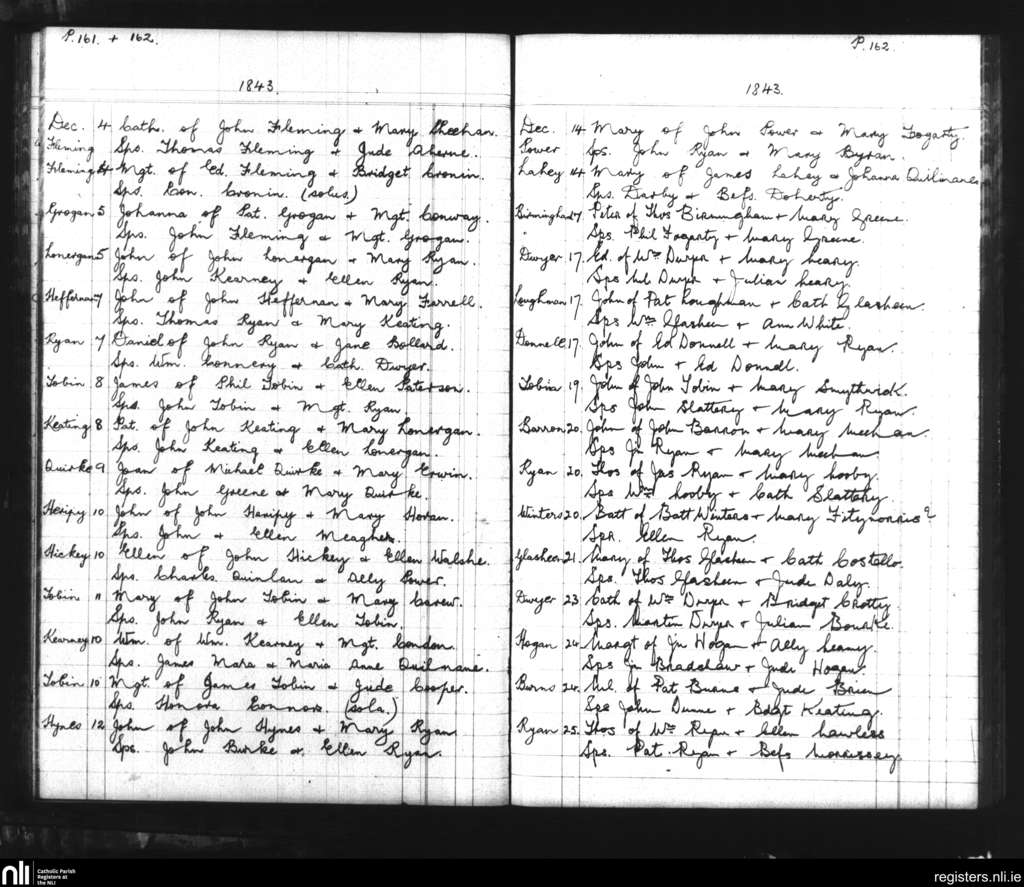 P. 161. + 162.
1843.
Dec. 4 Cath. of John Fleming & Mary Sheehan.
Fleming Sps. Thomas Fleming & Jude Aherne.
Fleming 4 Mgt. of Ed. Fleming & Bridget Cronin.
Sps. Con. Cronin. (solus)
Grogan 5 Johanna of Pat. Grogan & Mgt. Conway.
Sps. John Fleming & Mgt. Grogan.
Lonergan 5 John of John Lonergan & Mary Ryan.
Sps. John Kearney & Ellen Ryan.
Heffernan 7 John of John Heffernan & Mary Farrell.
Sps. Thomas Ryan & Mary Keating.
Ryan 7 Daniel of John Ryan & Jane Bollard.
Sps. Wm. Connery & Cath. Dwyer.
Tobin 8 James of Phil Tobin & Ellen Paterson.
Sps. John Tobin & Mgt. Ryan.
Keating 8 Pat. of John Keating & Mary Lonergan.
Sps. John Keating & Ellen Lonergan.
Quirke 9 Joan of Michael Quirke & Mary Erwin.
Sps. John Greene & Mary Quirke.
10 John of John & Mary Horan.
Sps. John & Ellen Meagher.
Hickey 10 Ellen of John Hickey & Ellen Walshe.
Sps. Charles Quinlan & Ally Power.
Tobin 11 Mary of John Tobin & Mary Carew.
Sps. John Ryan & Ellen Tobin.
Kearney 10 Wm. of Wm. Kearney & Mgt. Condon.
Sps. James Mara & Maria Anne Quilmane.
Tobin 10 Mgt. of James Tobin & Jude Cooper.
Sps. Honora Connors. (sola.)
Hynes 12 John of John Hynes & Mary Ryan
Sps. John Burke & Ellen Ryan.
P. 162.
1843.
Dec. 14 Mary of John Power & Mary Fogarty.
Power Sps. John Ryan & Mary Byran.
Lahey 14 Mary of James Lahey & Johanna Quilmane
Sps. Darby & Bess. Doherty.
Birmingham 17 Peter of Thos Birmingham & Mary Greene.
Sps Phil Fogarty & Mary Greene.
Dwyer 17. Ed. of Wm Dwyer & Mary Heary.
Sps Ml Dwyer & Julian Heary.
Loughman 17. John of Pat Loughman & Cath Glasheen.
Sps Wm Glasheen & Ann White.
Donnell 17. John of Ed Donnell & Mary Ryan.
Sps John & Ed Donnell.
Tobin 19. John of John Tobin & Mary Smythwick.
Sps John Slattery & Mary Ryan.
Barron 20. John of John Barron & Mary Meehan.
Sps Jn Ryan & Mary Meehan
Ryan 20. Thos of Jas Ryan & Mary Looby.
Sps Wm Looby & Cath Slattery.
Winters 20. Batt of Batt Winters & Mary Fitzmorris?
Spr. Ellen Ryan.
Glasheen 21. Mary of Thos Glasheen & Cath Costello.
Sps. Thos Glasheen & Jude Daly.
Dwyer 23 Cath of Wm Dwyer & Bridget Crotty.
Sps. Martin Dwyer & Julian Bourke.
Hogan 24 Margt of Jn Hogan & Ally Heaney.
Sps Jn Bradshaw & Jude Hogan.
Burns 24. Ml. of Pat Burns & Jude Brien
Sps John Dunne & Bdgt Keating.
Ryan 25. Thos of Wm Ryan & Ellen Lawless
Sps. Pat Ryan & Bess Morrissey.
nli Catholic Parish
Registers at
the NLI
registers.nli.ie